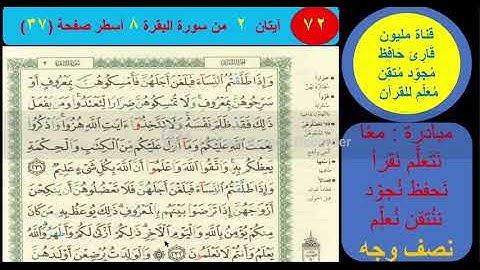 ٧٢
آيتان ٢ من سورة البقرة ٨ أسطر صفحة (٣٧)
قناة مليون
قارئ حافظ
مُجوّد مُتقن
مُعلّم للقرآن
مبادرة : معًا
نَتَعلّم نَقرأ
نَحفظ نُجوّد
نُتقن نُعلّم
نصف وجه
وَإِذَا طَلَّقْتُمُ النِّسَاءَ فَبَلَغْنَ أَجَلَهُنَّ فَأَمْسِكُوهُنَّ بِمَعْرُوفٍ أَوْ
سَرِّحُوهُنَّ بِمَعْرُوفٍ وَلَا تُمْسِكُوهُنَّ ضِرَارًا لِتَعْتَدُوا وَمَن يَفْعَلْ
ذَٰلِكَ فَقَدْ ظَلَمَ نَفْسَهُ وَلَا تَتَّخِذُوا آيَاتِ اللَّهِ هُزُوًا وَاذْكُرُوا
نِعْمَتَ اللَّهِ عَلَيْكُمْ وَمَا أَنزَلَ عَلَيْكُم مِّنَ الْكِتَابِ وَالْحِكْمَةِ
يَعِظُكُم بِهِ وَاتَّقُوا اللَّهَ وَاعْلَمُوا أَنَّ اللَّهَ بِكُلِّ شَيْءٍ عَلِيمٌ ٢٣١
وَإِذَا طَلَّقْتُمُ النِّسَاءَ فَبَلَغْنَ أَجَلَهُنَّ فَلَا تَعْضُلُوهُنَّ أَن يَنكِحْنَ
أَزْوَاجَهُنَّ إِذَا تَرَاضَوْا بَيْنَهُم بِالْمَعْرُوفِ ذَٰلِكَ يُوعَظُ بِهِ مَن كَانَ
مِنكُمْ يُؤْمِنُ بِاللَّهِ وَالْيَوْمِ الْآخِرِ ذَٰلِكُمْ أَزْكَىٰ لَكُمْ وَأَطْهَرُ وَاللَّهُ
يَعْلَمُ وَأَنتُمْ لَا تَعْلَمُونَ ٢٣٢ وَالْوَالِدَاتُ يُرْضِعْنَ أَوْلَادَهُنَّ